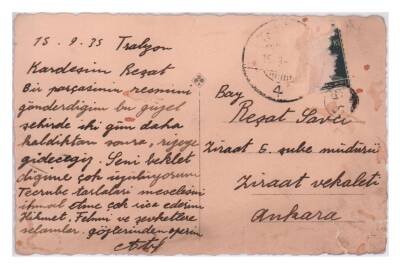 15.9.35 Trabzon
Kardeşim Reşat
Bir parçasının resmini
gönderdiğim bu güzel
şehirde iki gün daha
kaldıktan sonra, rizeye
gideceğiz. Seni beklet
diğime çok üzülüyorum
Tecrübe tarlaları meselesini
ihmal etme çok rica ederim
Hikmet, Fehmi ve şevketlere
selamlar. gözlerinden öperim
4
Bay
Reşat Savcı
Ziraat 5. şube müdürü
Ziraat vekaleti
Ankara